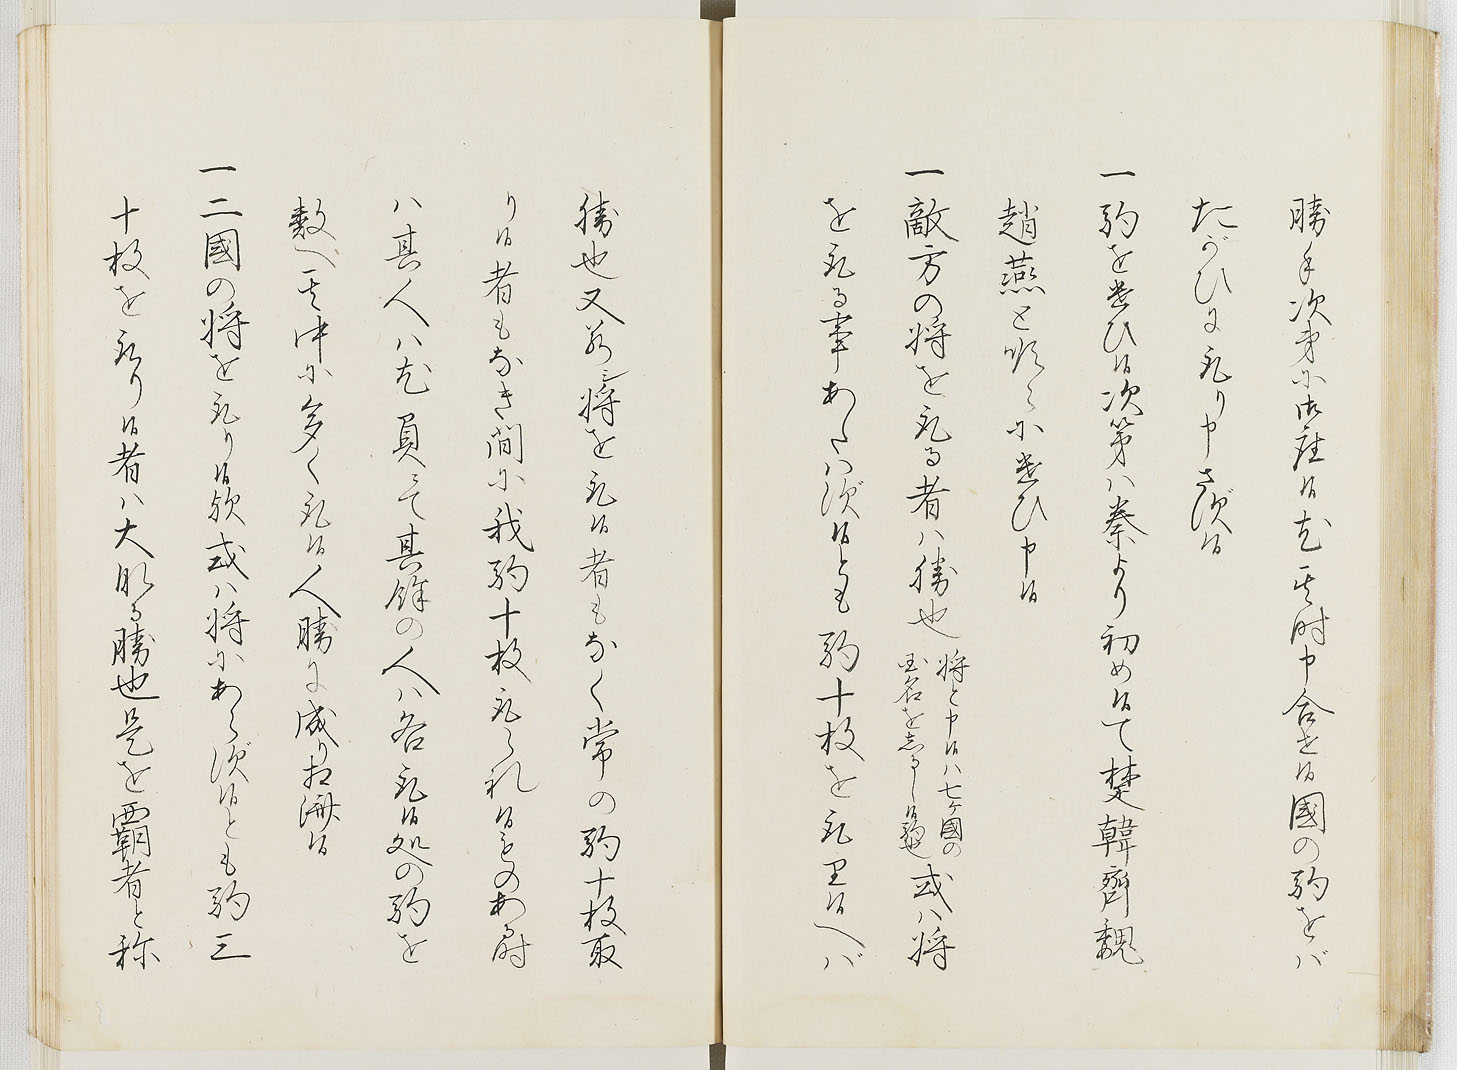 勝手次第に御座候尤其時申合せ候国の駒をバ
たがひに取り申さず候
一駒を遣ひ候次第ハ秦より初め候て楚韓齊魏
趙燕と順々に遣ひ申候
一敵方の将を取る者ハ勝也
将と申候ハ七ヶ國の
国名を志るし候駒也
或ハ将
を取る事あたハず候とも駒十枚を取里候へバ
勝也又若シ将を取候者もなく常の駒十枚取
り候者もなき間に我駒十枚取られ候ものある時
ハ其人ハ尤負ニて其餘の人ハ各取候処の駒を
数へ其中に多く取候人勝に成り相済候
一二國の将を取り候歟或ハ将にあらず候とも駒三
十枚を取り候者ハ大なる勝也是を覇者と称